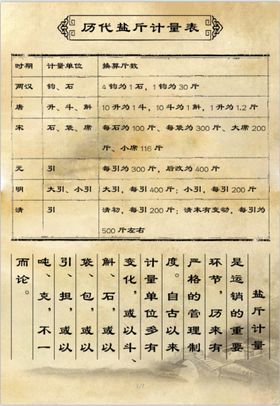 历代盐斤计量表
时期 计量单位 换算斤数
两汉 钧、石 4 钧为 1 石,1 钧为 30 斤
唐 升、斗、斛 10 升为 1 斗,10 斗为 1 斛,1 升为 1.2 斤
宋 石、袋、席 每石为 100 斤、每袋为 300 斤、大席 200
斤、小席 116 斤
元 引 每引为 300 斤,后改为 400 斤
明 大引、小引 大引,每引 400 斤;小引,每引 200 斤
清 引 清初,每引 200 斤;清末有变动,每引为
500 斤左右
盐斤计量
是运销的重要
环节,历来有
严格的管理制
度。自古以来
计量单位多有
变化,或以斗、
斛、石,或以
袋、包,或以
引、担,或以
吨、克,不一
而论。
1/1